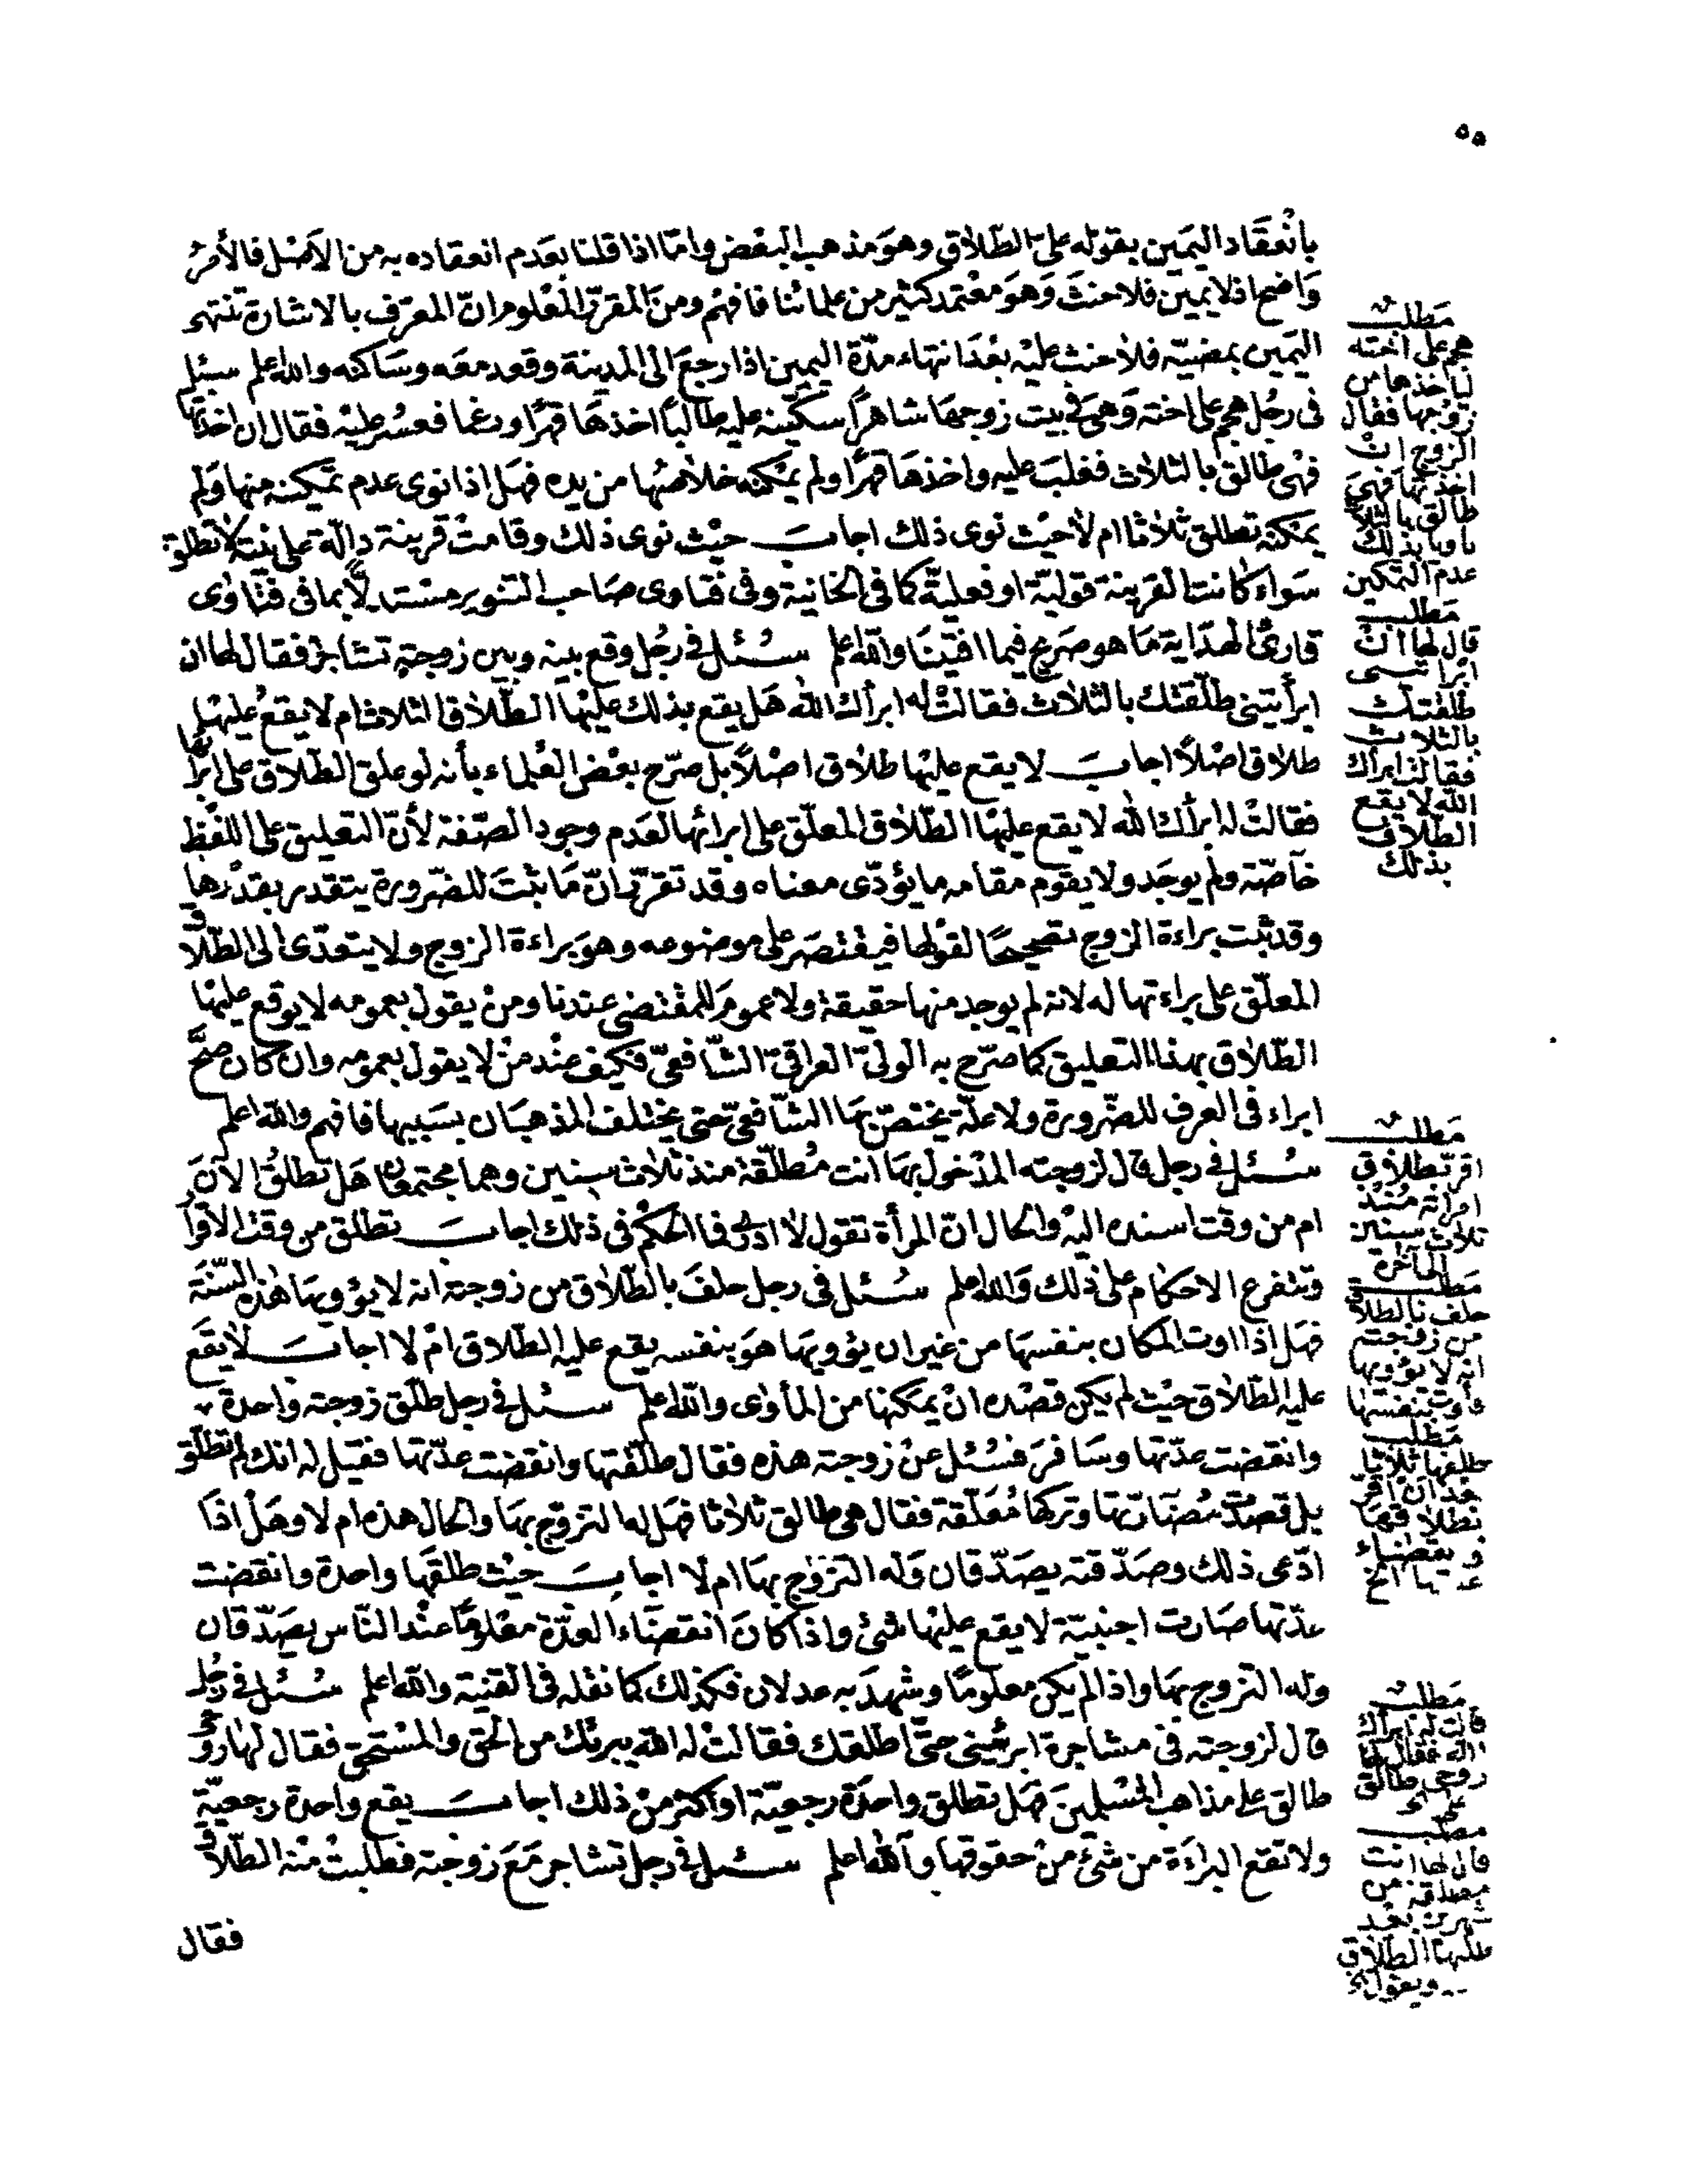 ٥٥
بانعقاد اليمين بقوله علىّ الطلاق وهو مذهب البعض وامّا اذا قلنا بعدم انعقاده به من الاصل فالأمر
واضح اذ لا يمين فلا حنث وهو معتمد كثير من علمائنا فافهم ومن المقرّر المعلوم انّ المعرّف بالاشارة تنتهى
اليمين بمضيّه فلا حنث عليه بعد انتهاء مدّة اليمين اذا رجع الى المدينة وقعد معه وساكنه والله اعلم سئل
فى رجل هجم على اخته وهى فى بيت زوجها شاهرًا سكّينه عليه طالبًا اخذها قهرًا ورغما فعسر عليه فقال ان اخذتها
فهى طالق بالثلاث فغلب عليه واخذها قهرًا ولم يمكنه خلاصها من يده فهل اذا نوى عدم تمكينه منها ولم
يمكنه تطلق ثلاثا ام لا حيث نوى ذلك اجاب حيث نوى ذلك وقامت قرينة دالّة على نيته لا تطلق
سواء كانت القرينة قوليّة او فعليّة كما فى الخانية وفى فتاوى صاحب التنوير مستدلّا بما فى فتاوى
قارئ الهداية ما هو صريح فيما افتينا والله اعلم سئل فى رجل وقع بينه وبين زوجته تشاجر فقال لها ان
ابرأتينى طلّقتك بالثلاث فقالت له ابرأك الله هل يقع بذلك عليها الطلاق الثلاث ام لا يقع عليها
طلاق اصلاً اجاب لا يقع عليها طلاق اصلاً بل صرّح بعض العلماء بأنه لو علق الطلاق على ابرائها
فقالت له ابرأك الله لا يقع عليها الطلاق المعلّق على ابرائها لعدم وجود الصفة لأنّ التعليق على اللفظ
خاصّة ولم يوجد ولا يقوم مقامه ما يؤدّى معناه وقد تقرّر انّ ما ثبت للضرورة يتقدر بقدرها
وقد ثبت براءة الزوج تصحيحًا لقولها فيقتصر على موضوعه وهو براءة الزوج ولا يتعدّى الى الطلاق
المعلّق على براءتها له لانه لم يوجد منها حقيقة ولا عموم للمقتضى عندنا ومن يقول بعمومه لا يوقع عليها
الطلاق بهذا التعليق كما صرّح به الولىّ العراقىّ الشافعىّ فكيف عند من لا يقول بعمومه وان كان صحّ
ابراء فى العرف للضرورة ولا علّة يختصّ بها الشافعىّ حتى يختلف المذهبان بسببها فافهم والله اعلم
سئل فى رجل قال لزوجته المدخول بها انت مطلّقة منذ ثلاث سنين وهما مجتمعان هل تطلق الآن
ام من وقت اسنده اليه والحال انّ المرأة تقول لا ادرى فما الحكم فى ذلك اجاب تطلق من وقت الاقرار
وتتفرع الاحكام على ذلك والله اعلم سئل فى رجل حلف بالطلاق من زوجته انه لا يؤويها هذه السّنة
فهل اذا اوت المكان بنفسها من غير ان يؤويها هو بنفسه يقع عليه الطلاق ام لا اجاب لا يقع
عليه الطلاق حيث لم يكن قصده ان يمكنها من المأوى والله اعلم سئل فى رجل طلّق زوجته واحدة
وانقضت عدّتها وسافر فسئل عن زوجته هذه فقال طلّقتها وانقضت عدّتها فقيل له انك لم تطلّق
بل قصدت مضارّتها وتركها معلّقة فقال هى طالق ثلاثا فهل له التزوّج بها والحال هذه ام لا وهل اذا
ادّعى ذلك وصدّقته يصدّقان وله التزوّج بها ام لا اجاب حيث طلقها واحدة وانقضت
عدّتها صارت اجنبيّة لا يقع عليها شئ واذا كان انقضاء العدّة معلومًا عند الناس يصدّقان
وله التزوج بها واذا لم يكن معلومًا وشهد به عدلان فكذلك كما نقله فى القنية والله اعلم سئل فى رجل
قال لزوجته فى مشاجرة ابرئينى حتّى اطلقك فقالت له الله يبرئك من الحق والمستحق فقال لها روحى
طالق على مذاهب المسلمين فهل تطلق واحدة رجعيّة او اكثر من ذلك اجاب يقع واحدة رجعيّة
ولا تقع البراءة من شئ من حقوقها والله اعلم سئل فى رجل تشاجر مع زوجته فطلبت منه الطلاق
فقال
مطلب
هجم على اخته
لياخذها من
زوجها فقال
الزوج ان
اخذتها فهى
طالق بالثلاث
ناويا بذلك
عدم التمكين
مطلب
قال لها ان
ابرأتينى
طلقتك
بالثلاث
فقالت ابرأك
الله لا يقع
الطلاق
بذلك
مطلب
اقرّ بطلاق
امرأته منذ
ثلاث سنين
الى آخره
مطلب
حلف بالطلاق
من زوجته
انه لا يؤويها
فأوت بنفسها
مطلب
طلقها ثلاثا
بعد ان اقرّ
بطلاقها
وبانقضاء
عدتها الخ
مطلب
قالت له ابرأك
الله فقال لها
روحى طالق
مطلب
قال لها انت
مطلقة من
شهرين بعد
طلبها الطلاق